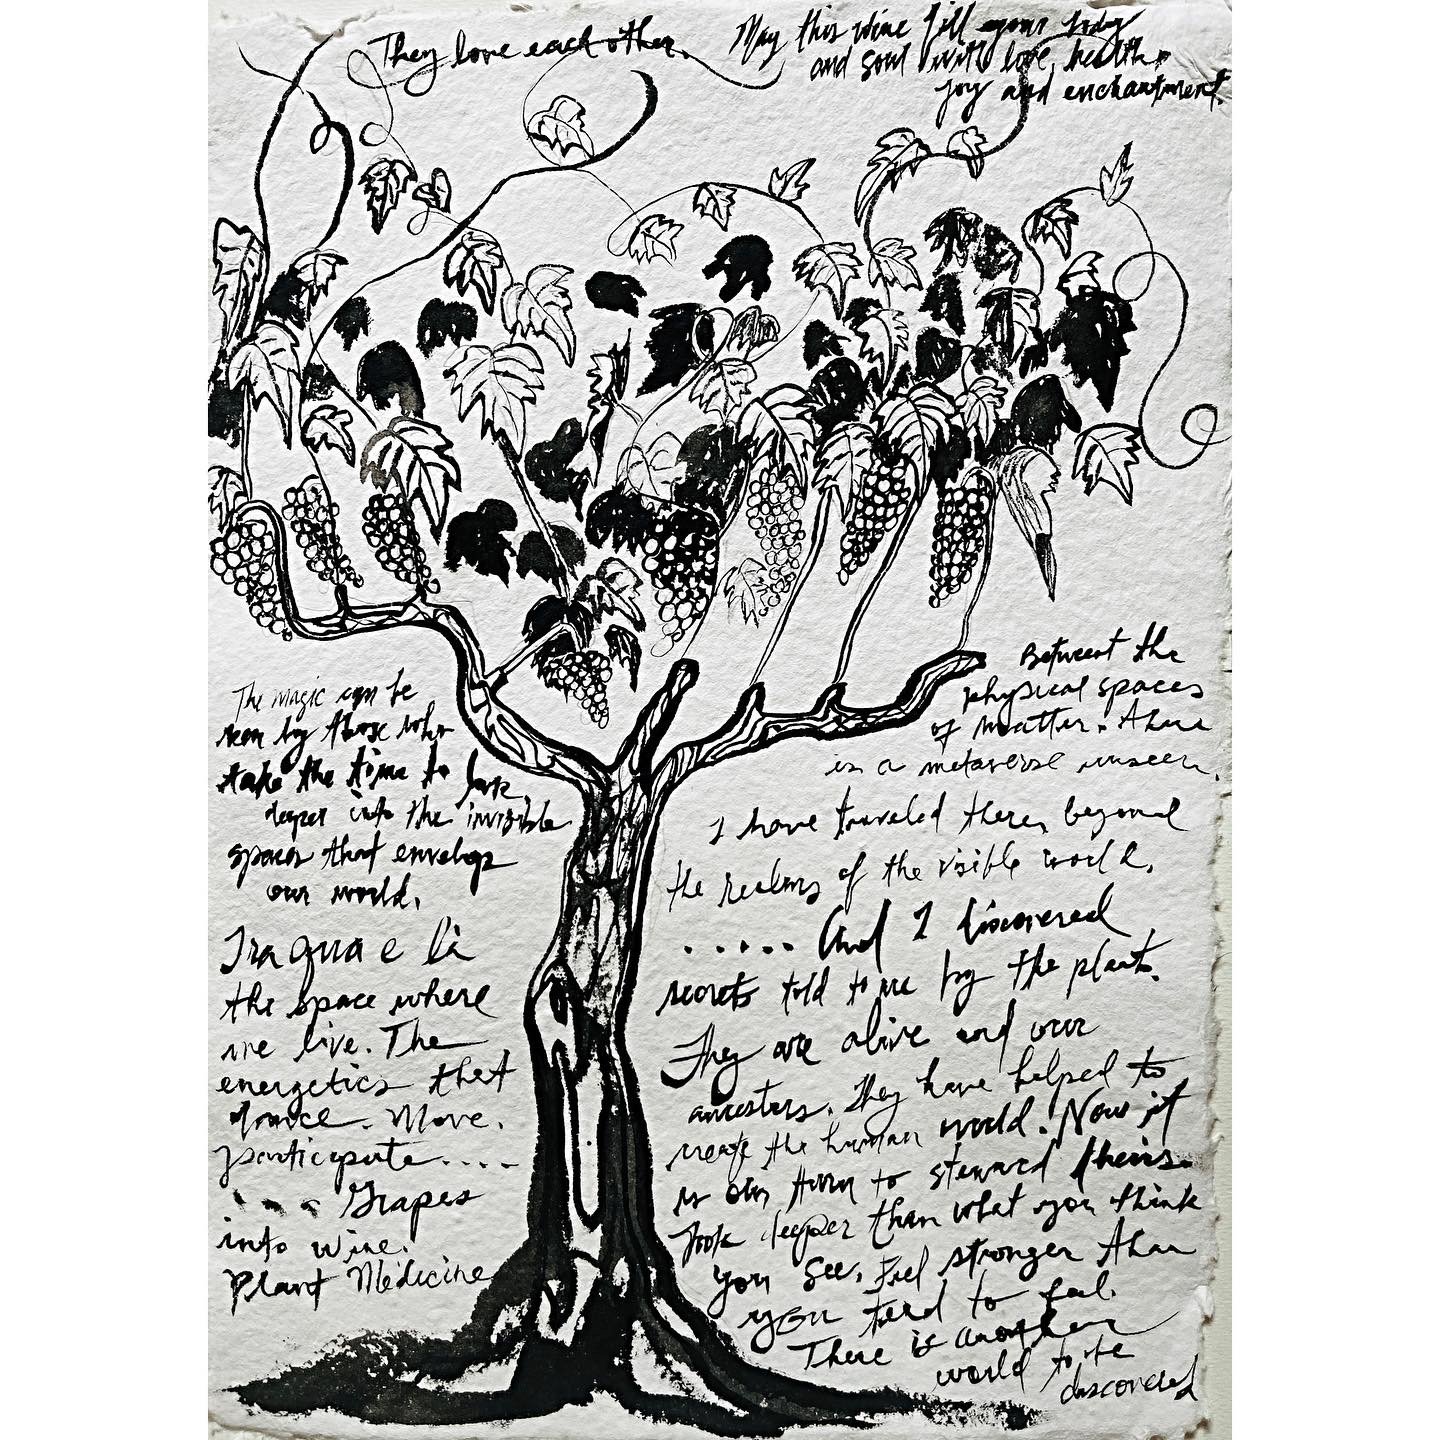 They love each other.
May this wine fill your body
and soul with love, health,
joy and enchantment.
The magic can be
seen by those who
take the time to look
deeper into the invisible
spaces that envelop
our world.
Tra qua e là
the space where
we live. The
energetics that
dance. Move.
participate....
... Grapes
into wine.
Plant Medicine
Between the
physical spaces
of matter. There
is a metaverse unseen.
I have traveled there, beyond
the realms of the visible world.
..... And I discovered
secrets told to me by the plants.
They are alive and our
ancestors. They have helped to
create the human world. Now it
is our turn to steward theirs.
Look deeper than what you think
you see. Feel stronger than
you tend to feel.
There is another
world to be
discovered